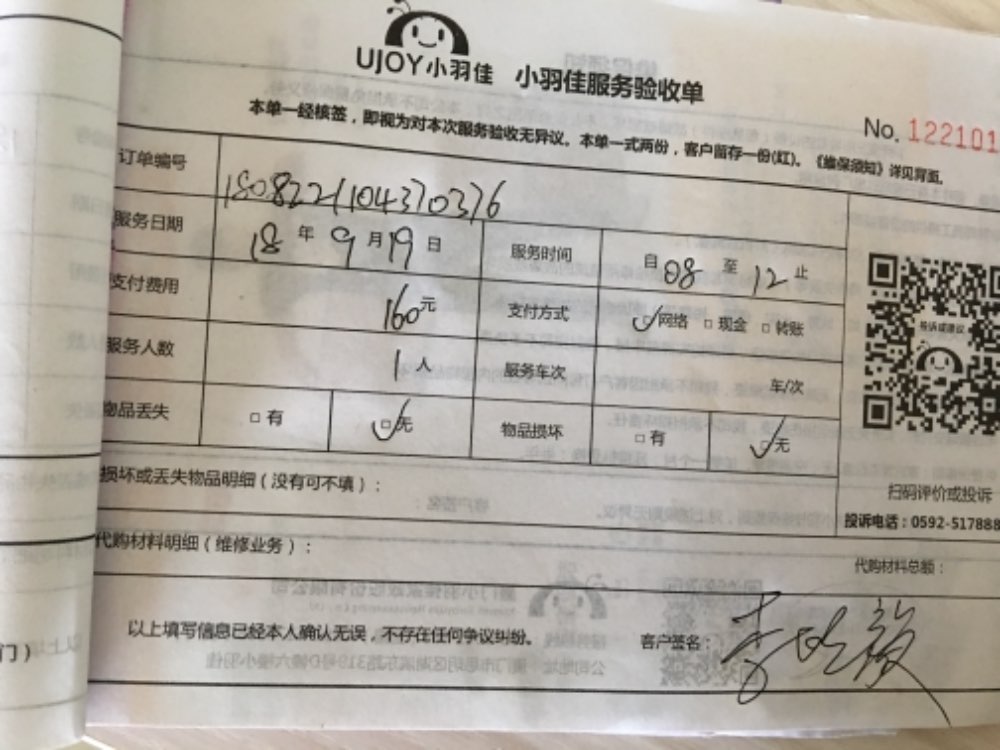 UJOY小羽佳 小羽佳服务验收单
No. 122101
本单一经核签，即视为对本次服务验收无异议。本单一式两份，客户留存一份(红)。《维保须知》详见背面。
订单编号 1808221104370376
服务日期 18 年 9 月 19 日 服务时间 自 08 至 12 止
支付费用 160元 支付方式 ☑网络 □现金 □转账
服务人数 1人 服务车次 车/次
物品丢失 □有 ☑无 物品损坏 □有 ☑无
投诉或建议
扫码评价或投诉
投诉电话：0592-517888
损坏或丢失物品明细（没有可不填）：
代购材料明细（维修业务）：
代购材料总额：
以上填写信息已经本人确认无误，不存在任何争议纠纷。 客户签名：